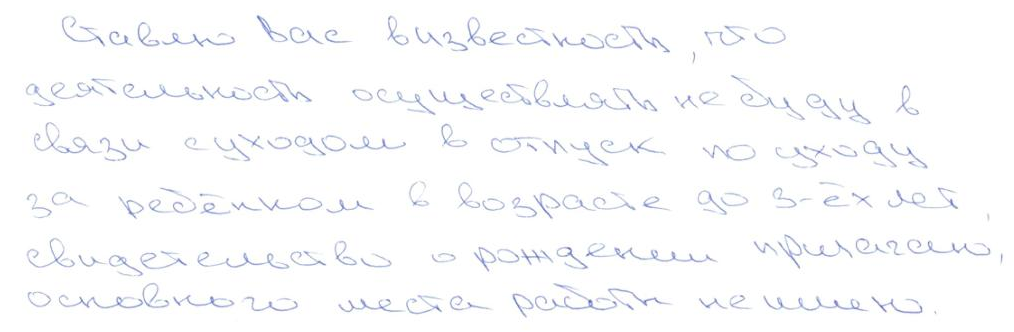 Ставлю Вас в известность, что
деятельность осуществлять не буду в
связи с уходом в отпуск по уходу
за ребёнком в возрасте до 3-ёх лет,
свидетельство о рождении прилагаю,
основного места работы не имею.